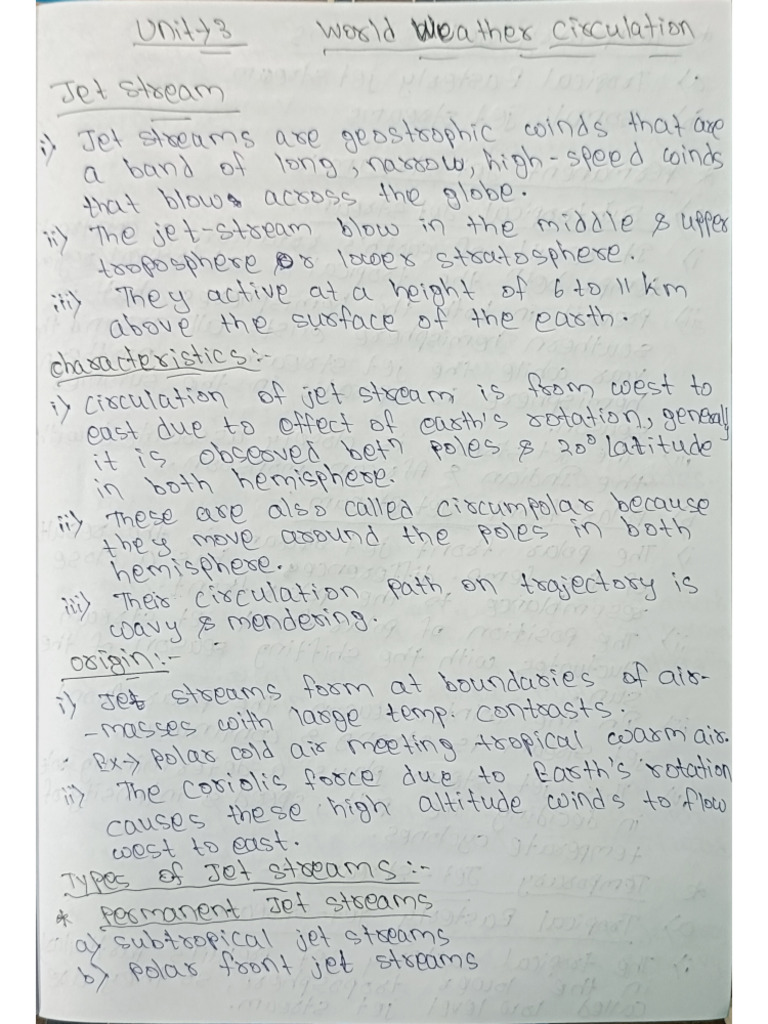 Unit→3 World Weather Circulation
Jet Stream
i) Jet streams are geostrophic winds that are
a band of long, narrow, high-speed winds
that blows across the globe.
ii) The jet-stream blow in the middle & upper
troposphere or lower stratosphere.
iii) They active at a height of 6 to 11 km
above the surface of the earth.
characteristics:-
i) circulation of jet stream is from west to
east due to effect of earth's rotation, generally
it is observed betn poles & 20° latitude
in both hemisphere.
ii) These are also called circumpolar because
they move around the poles in both
hemisphere.
iii) Their circulation path on trajectory is
wavy & mendering.
origin:-
i) Jet streams form at boundaries of air-
-masses with large temp. contrasts.
Ex→ polar cold air meeting tropical warm air.
ii) The coriolis force due to Earth's rotation
causes these high altitude winds to flow
west to east.
Types of Jet streams:-
* permanent Jet streams
a) subtropical jet streams
b) polar front jet streams